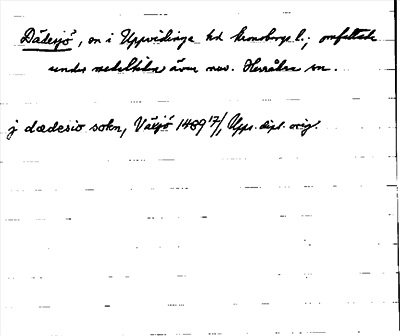 Dädesjö, sn i Uppvidinge hd Kronobergs l.; omfattade
under medeltiden även nuv. Herråkra sn.
j dædesio sokn, Växjö 1489 17/1, Upps. dipl. orig.